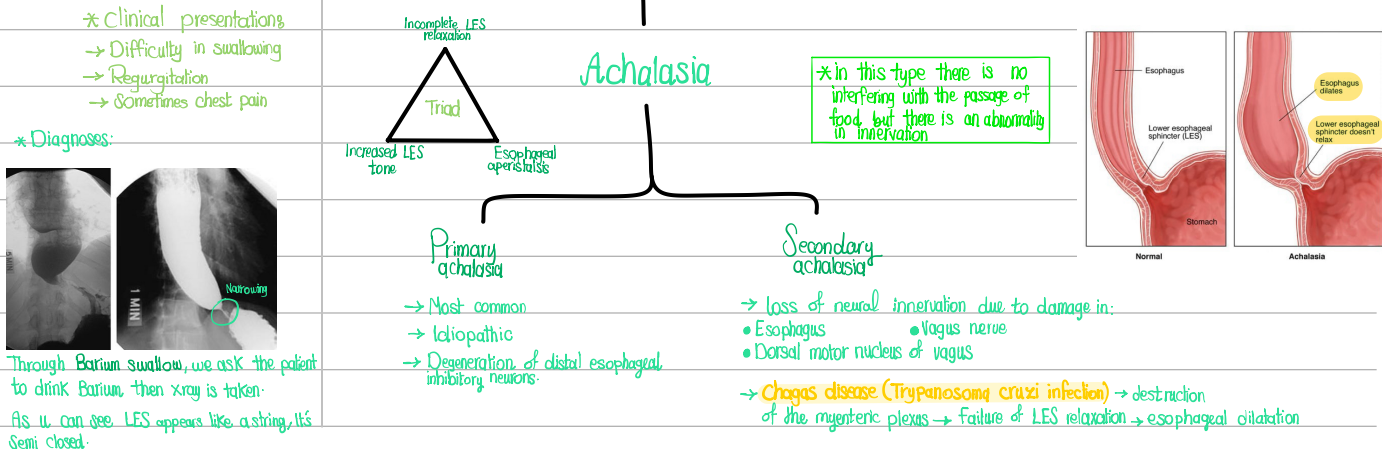 * Clinical presentations
→ Difficulty in swallowing
→ Regurgitation
→ Sometimes chest pain
* Diagnoses:
1 MIN
Narrowing
Through Barium swallow, we ask the patient
to drink Barium, then xray is taken.
As u can see LES appears like a string, it's
Semi closed.
Incomplete LES
relaxation
Triad
Increased LES
tone
Esophageal
aperistalsis
Achalasia
* in this type there is no
interfering with the passage of
food, but there is an abnormality
in innervation
Primary
achalasia
→ Most common
→ Idiopathic
→ Degeneration of distal esophageal
inhibitory neurons.
Secondary
achalasia
→ loss of neural innervation due to damage in:
• Esophagus • Vagus nerve
• Dorsal motor nucleus of vagus
→ Chagas disease (Trypanosoma cruzi infection) → destruction
of the myenteric plexus → Failure of LES relaxation → esophageal dilatation
Esophagus
Lower esophageal
sphincter (LES)
Stomach
Normal
Esophagus
dilates
Lower esophageal
sphincter doesn't
relax
Achalasia